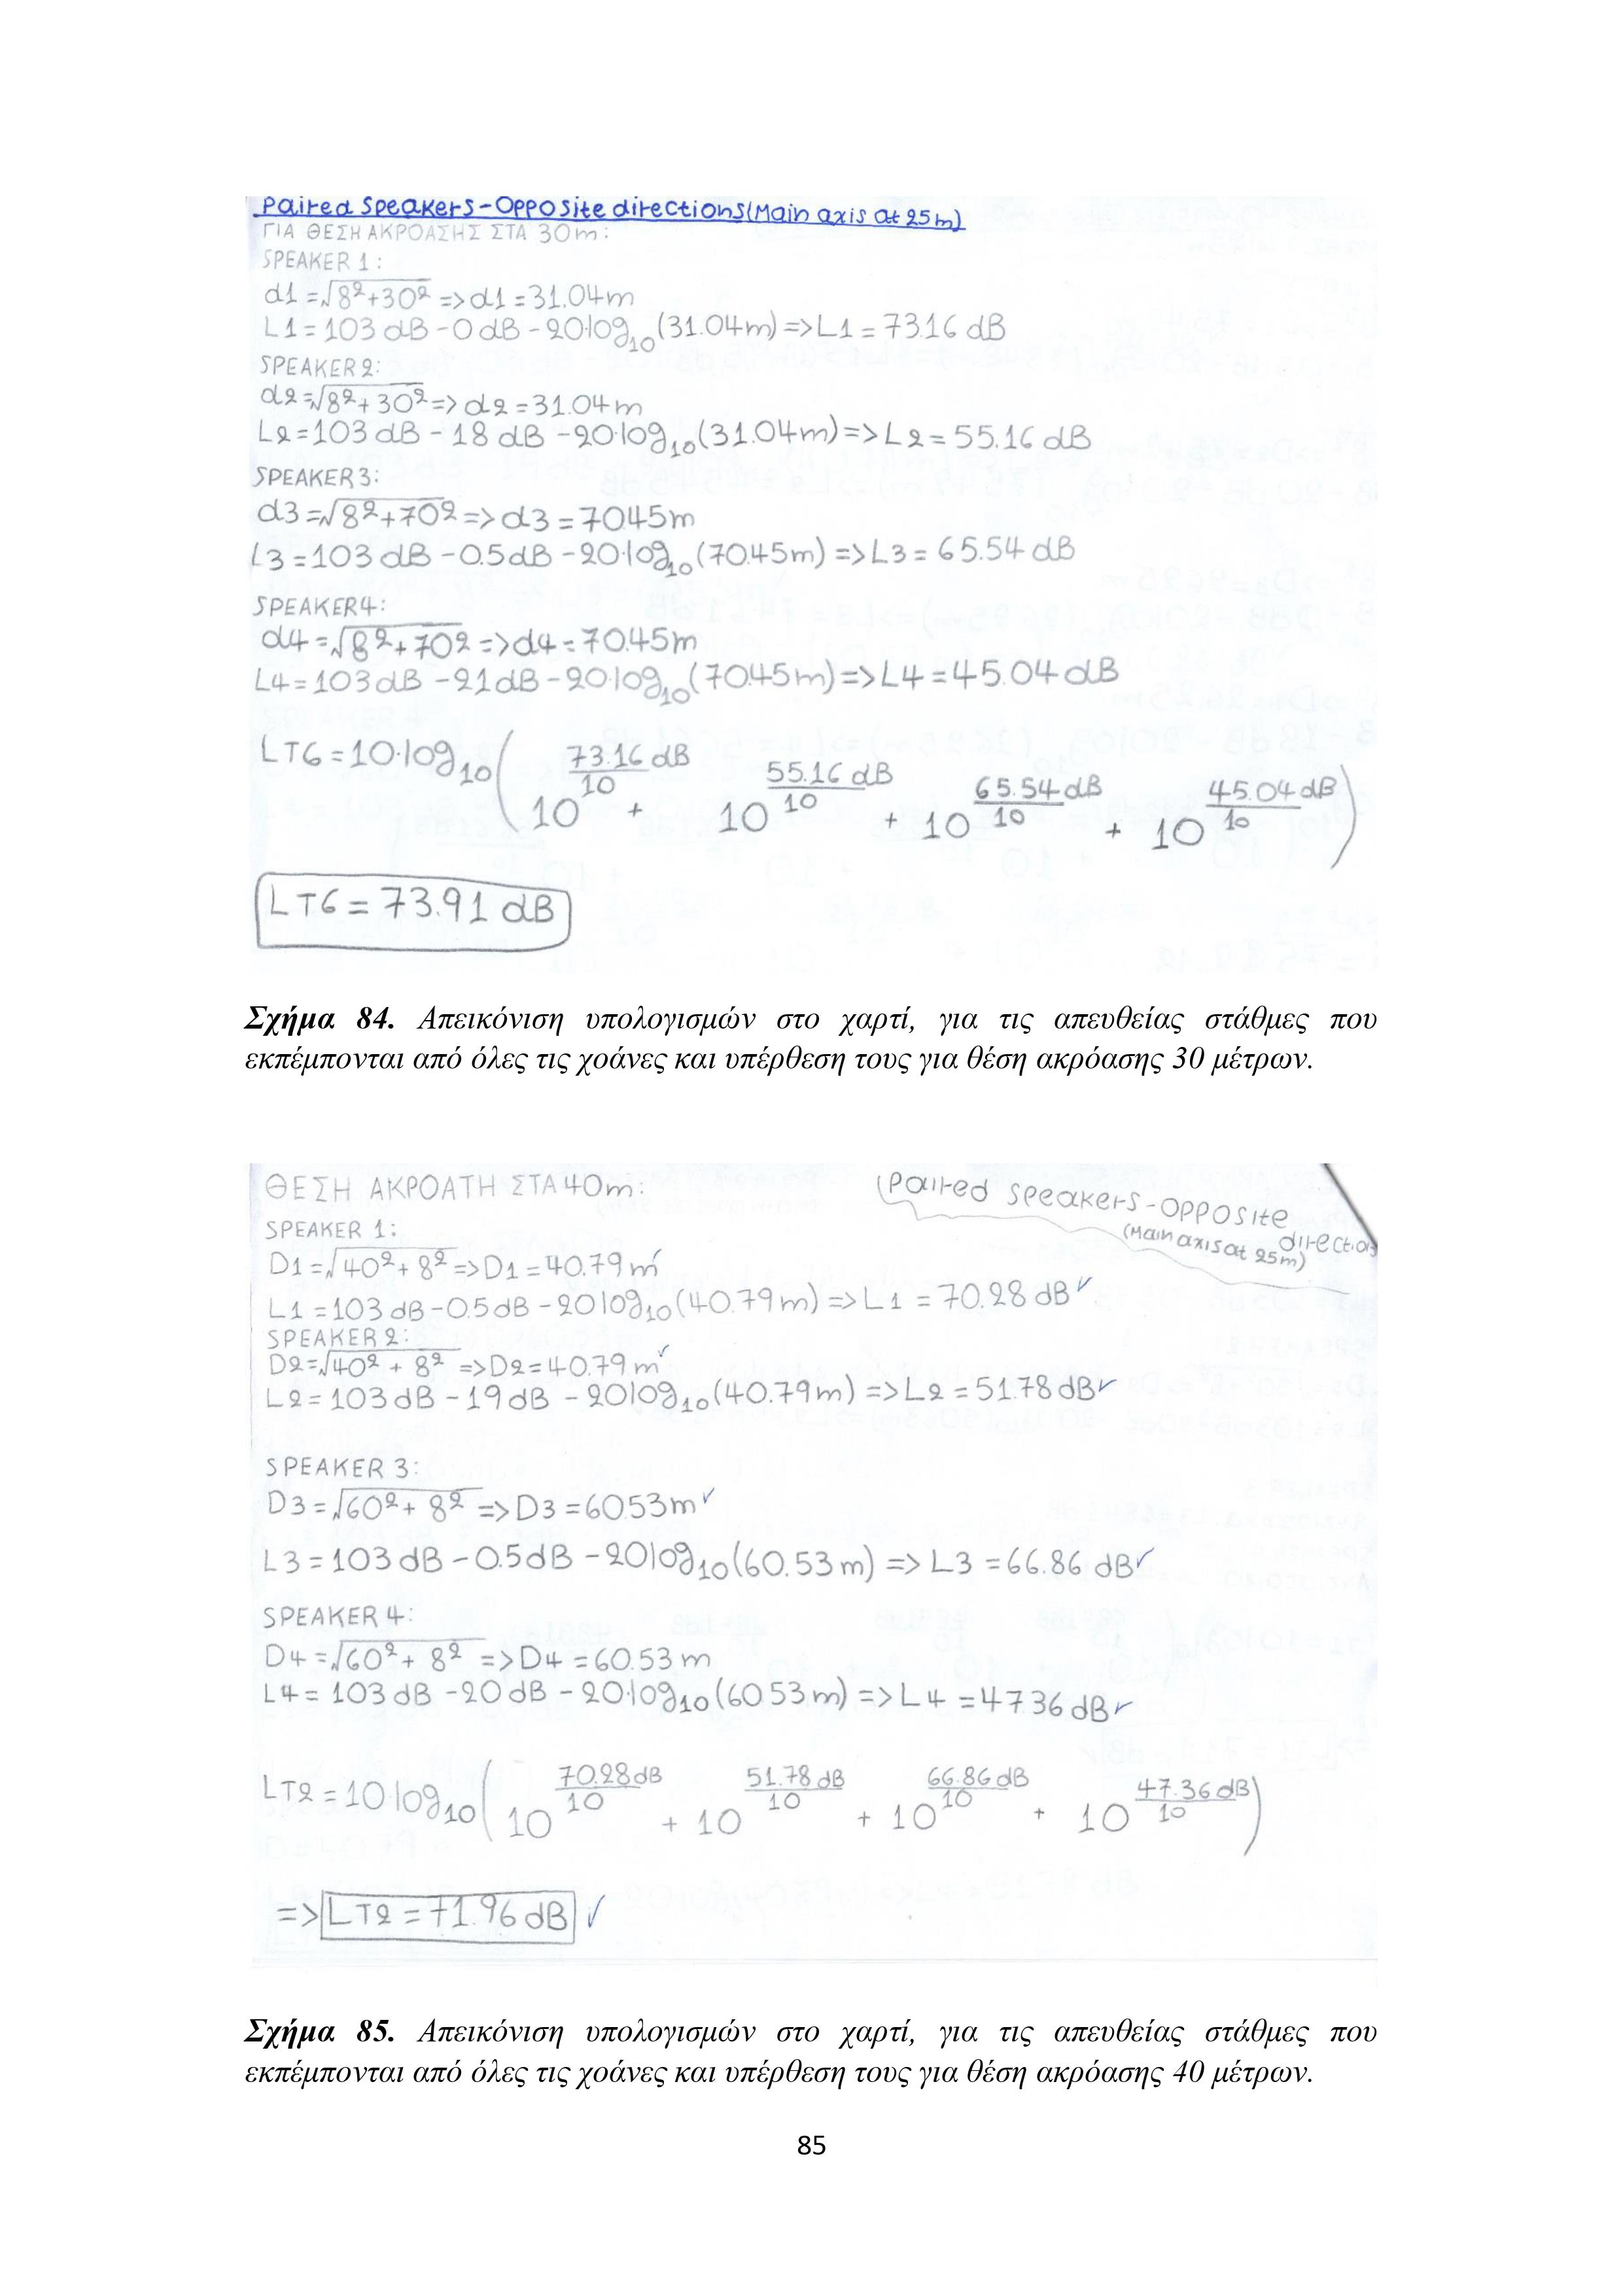 Paired Speakers-Opposite directions(Main axis at 25m)
ΓΙΑ ΘΕΣΗ ΑΚΡΟΑΣΗΣ ΣΤΑ 30m:
SPEAKER 1:
d1=√8²+30² => d1=31.04m
L1=103dB-0dB-20·log₁₀(31.04m)=>L1=73.16 dB
SPEAKER 2:
d2=√8²+30² => d2=31.04m
L2=103dB-18dB-20·log₁₀(31.04m)=>L2=55.16 dB
SPEAKER 3:
d3=√8²+70² => d3=70.45m
L3=103dB-0.5dB-20·log₁₀(70.45m)=>L3=65.54 dB
SPEAKER4:
d4=√8²+70² => d4=70.45m
L4=103dB-21dB-20·log₁₀(70.45m)=>L4=45.04 dB
LT6=10·log₁₀(10^(73.16dB/10) + 10^(55.16dB/10) + 10^(65.54dB/10) + 10^(45.04dB/10))
LT6=73.91 dB
Σχήμα 84. Απεικόνιση υπολογισμών στο χαρτί, για τις απευθείας στάθμες που
εκπέμπονται από όλες τις χοάνες και υπέρθεση τους για θέση ακρόασης 30 μέτρων.
ΘΕΣΗ ΑΚΡΟΑΤΗ ΣΤΑ 40m:
(Paired Speakers-Opposite
direction
(Main axis at 25m)
SPEAKER 1:
D1=√40²+8² =>D1=40.79m ✓
L1=103dB-0.5dB-20log₁₀(40.79m)=>L1=70.28dB ✓
SPEAKER 2:
D2=√40²+8² =>D2=40.79m ✓
L2=103dB-19dB-20log₁₀(40.79m)=>L2=51.78dB ✓
SPEAKER 3:
D3=√60²+8² =>D3=60.53m ✓
L3=103dB-0.5dB-20log₁₀(60.53m)=>L3=66.86 dB ✓
SPEAKER 4:
D4=√60²+8² =>D4=60.53m
L4=103dB-20dB-20·log₁₀(60.53m)=>L4=47.36dB ✓
LT2=10·log₁₀(10^(70.28dB/10) + 10^(51.78dB/10) + 10^(66.86dB/10) + 10^(47.36dB/10))
=>LT2=71.96dB ✓
Σχήμα 85. Απεικόνιση υπολογισμών στο χαρτί, για τις απευθείας στάθμες που
εκπέμπονται από όλες τις χοάνες και υπέρθεση τους για θέση ακρόασης 40 μέτρων.
85